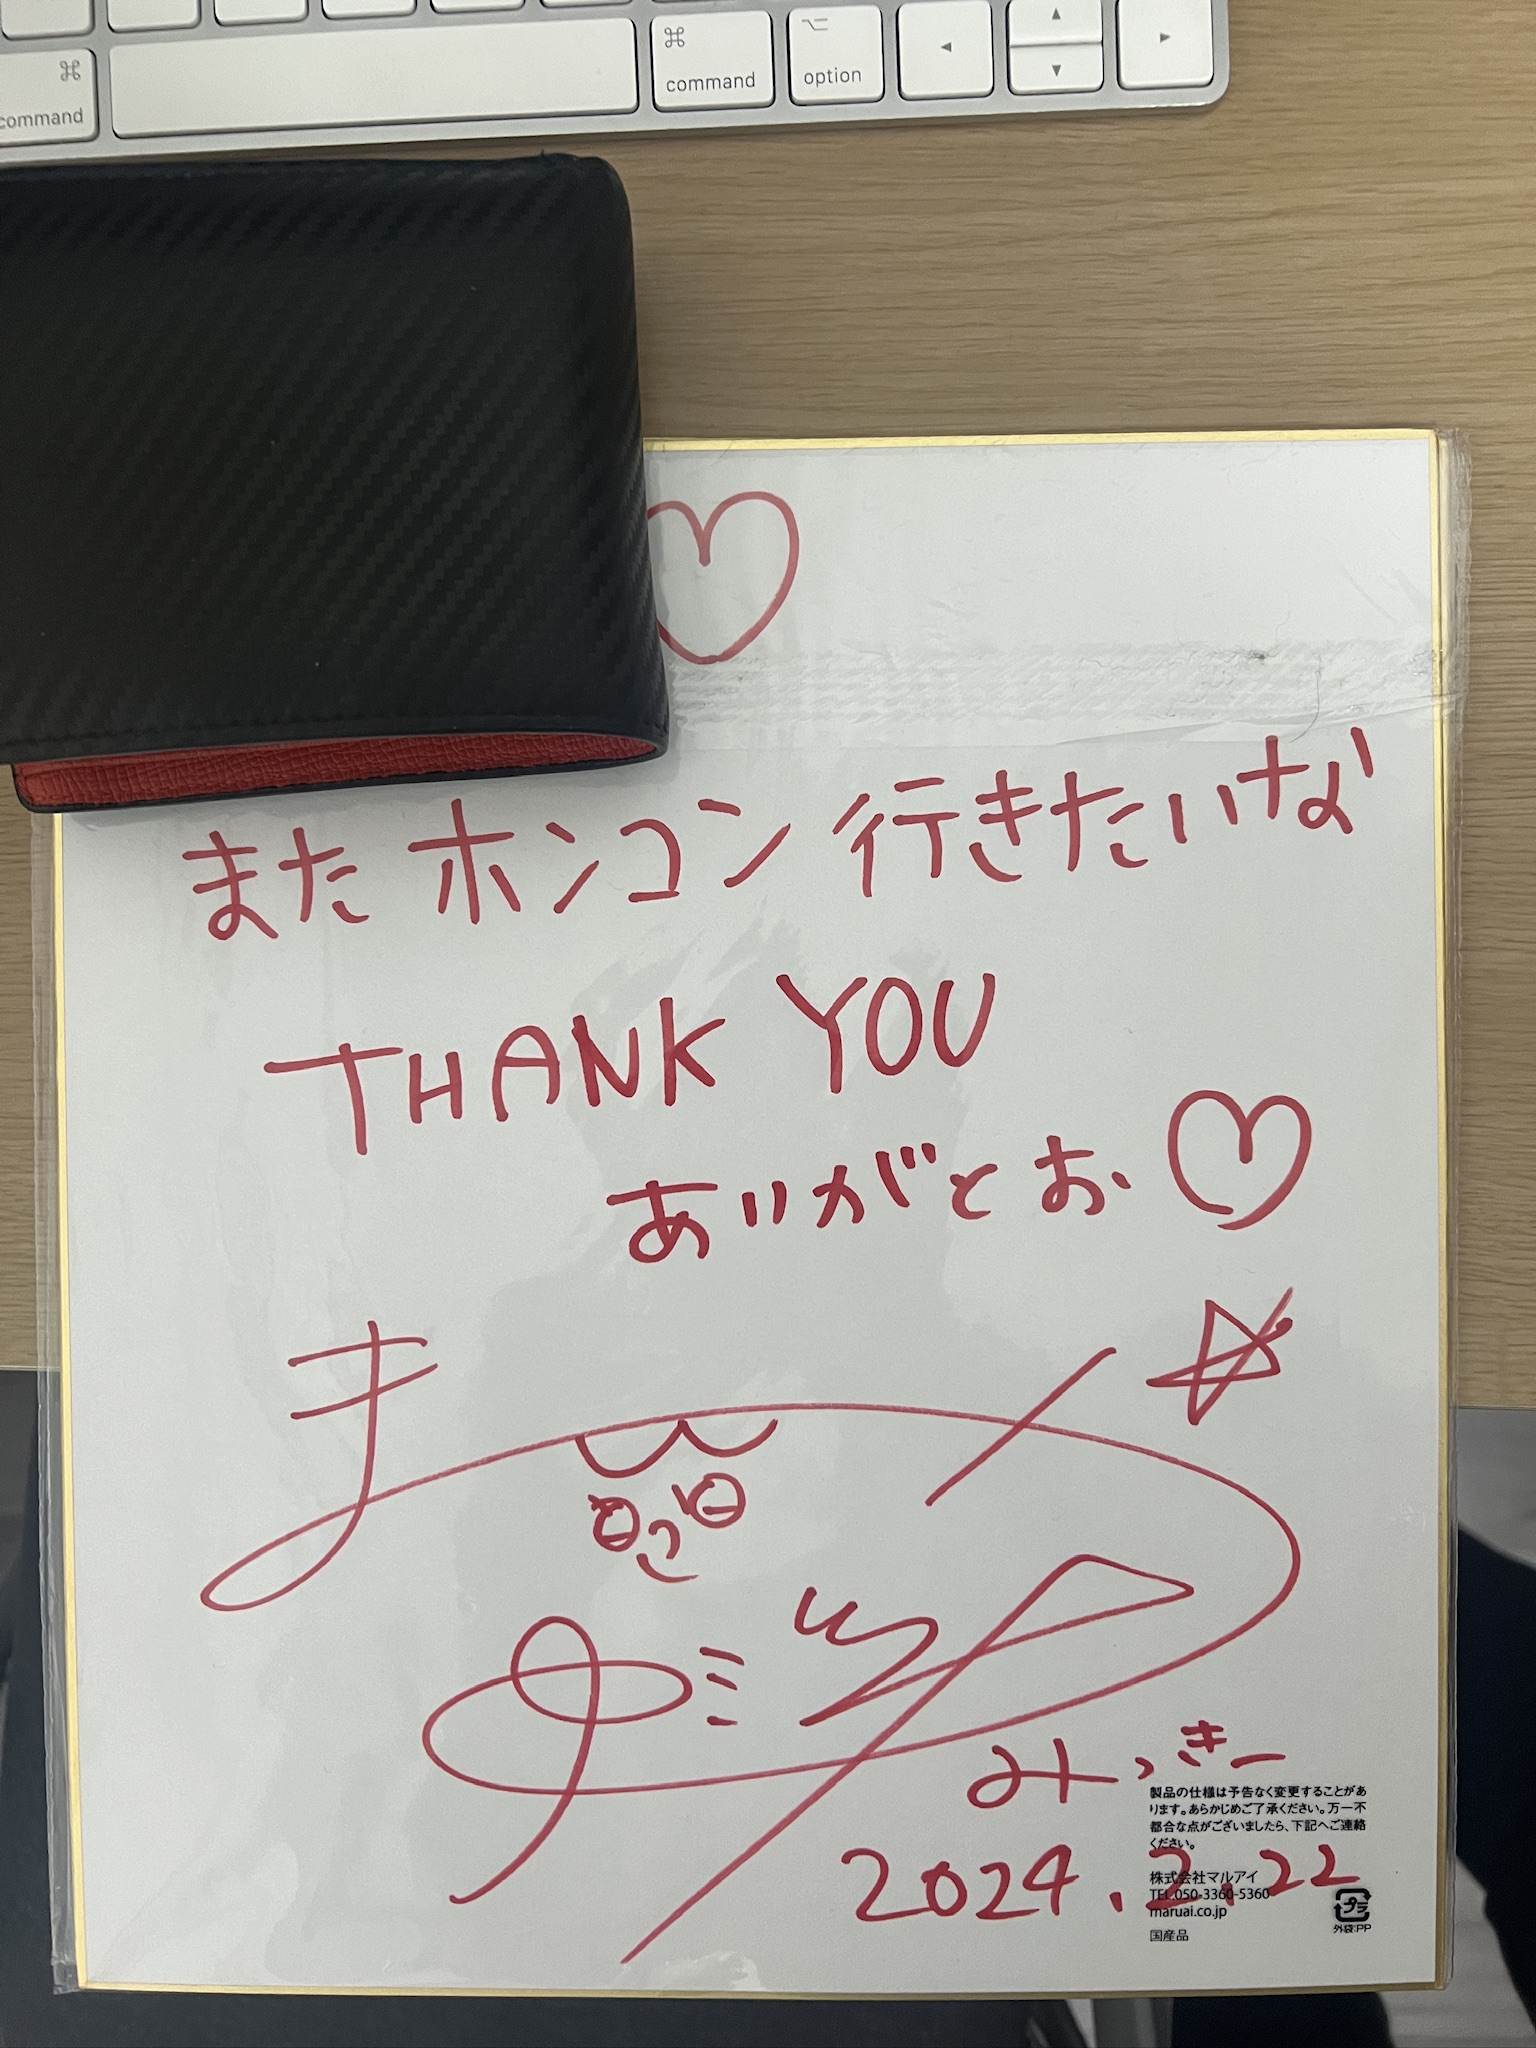 ⌘
command
⌘
command
⌥
option
◀
▲
▼
▶
またホンコン行きたいな
THANK YOU
ありがとお
みっきー
2024.2.22
製品の仕様は予告なく変更することがあ
ります。あらかじめご了承ください。万一不
都合な点がございましたら、下記へご連絡
ください。
株式会社マルアイ
TEL.050-3360-5360
maruai.co.jp
国産品
プラ
外袋:PP